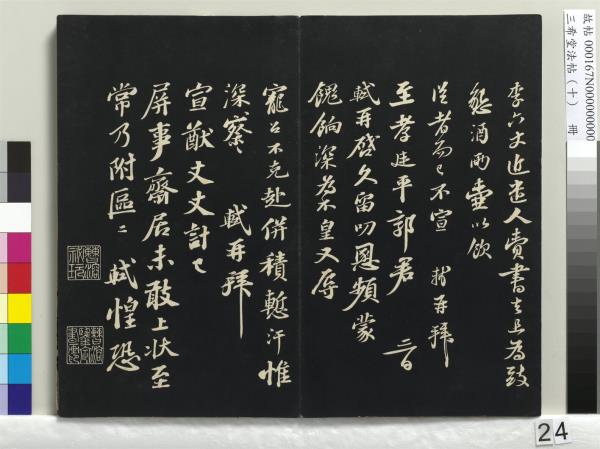 李六丈近遣人賫書去且爲致
懇酒兩壷以飲
從者而已不宣 軾再拜
至孝廷平郭君 二日
軾再啓久留叨恩頻蒙
餽餉深爲不皇又辱
寵召不克赴併積慙汗惟
深察 軾再拜
宣猷丈丈計已
屏事齋居未敢上狀至
常乃附區區 軾惶恐
故帖000167N000000000
三希堂法帖(十) 冊
24